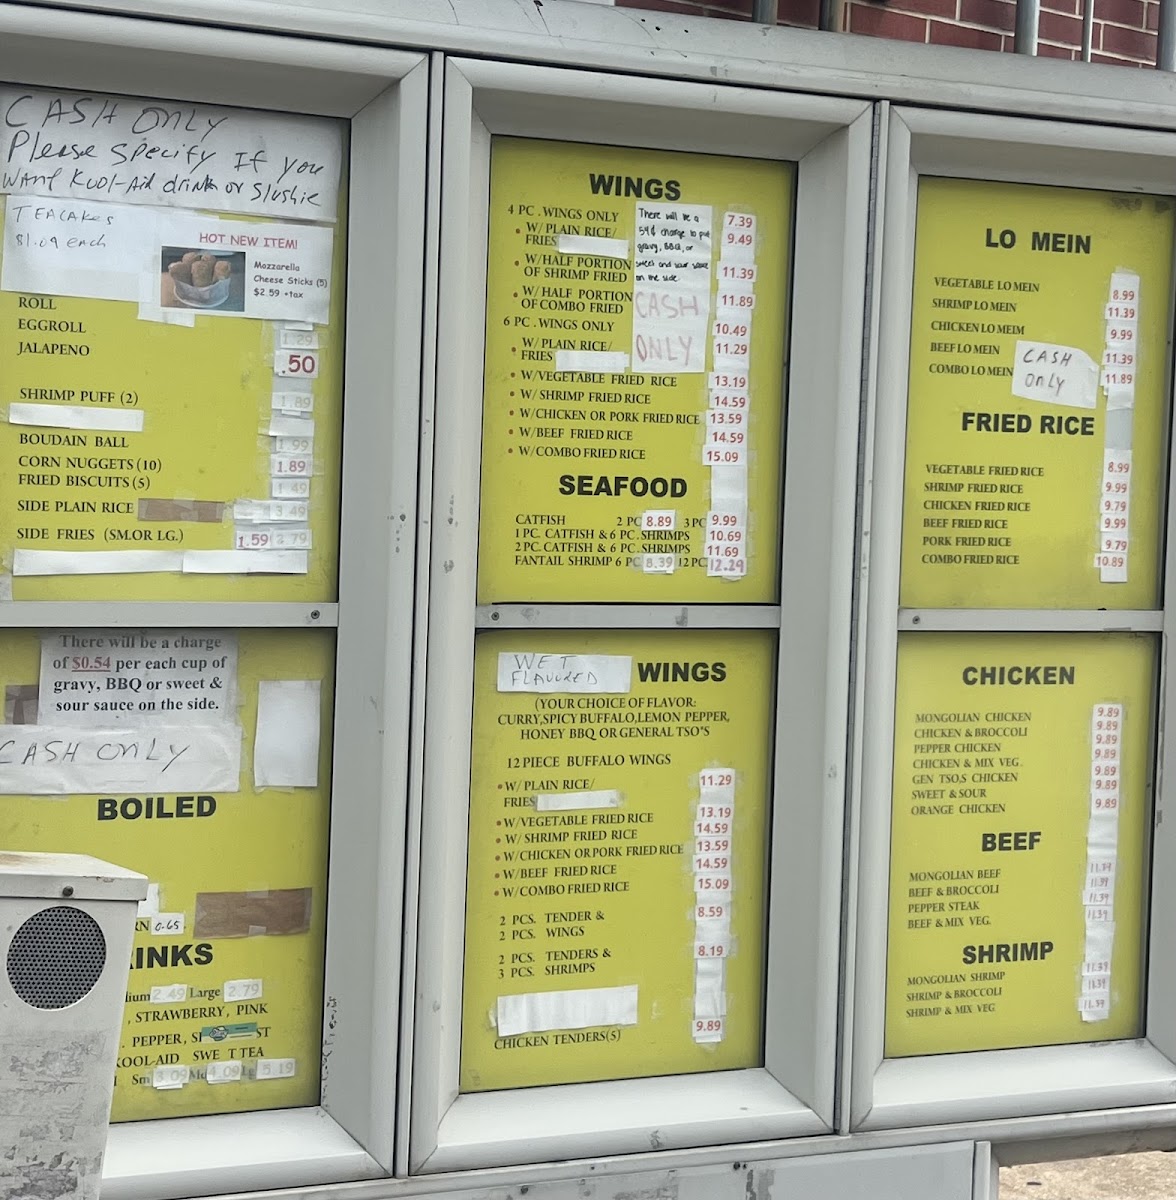 CASH ONLY
Please Specify If you
WANT Kool-Aid drink or Slushie
TEACAKES
$1.09 each
HOT NEW ITEM!
Mozzarella
Cheese Sticks (5)
$2.59 +tax
ROLL
EGGROLL 1.29
JALAPENO .50
SHRIMP PUFF (2) 1.89
BOUDAIN BALL 1.99
CORN NUGGETS (10) 1.89
FRIED BISCUITS (5) 1.49
SIDE PLAIN RICE 3.49
SIDE FRIES (SM.OR LG.) 1.59 3.79
There will be a charge
of $0.54 per each cup of
gravy, BBQ or sweet &
sour sauce on the side.
CASH ONLY
BOILED
RN 0.65
INKS
ium 2.49 Large 2.79
, STRAWBERRY, PINK
. PEPPER, ST
KOOL-AID SWE T TEA
Sm 3.09 Md 4.09 Lg 5.19
WINGS
4 PC . WINGS ONLY 7.39
• W/ PLAIN RICE/
FRIES 9.49
• W/HALF PORTION
OF SHRIMP FRIED 11.39
• W/ HALF PORTION
OF COMBO FRIED 11.89
6 PC . WINGS ONLY 10.49
• W/ PLAIN RICE/
FRIES 11.29
There will be a
59¢ charge to put
gravy, BBQ, or
sweet and sour sauce
on the side
CASH
ONLY
• W/VEGETABLE FRIED RICE 13.19
• W/ SHRIMP FRIED RICE 14.59
• W/CHICKEN OR PORK FRIED RICE 13.59
• W/BEEF FRIED RICE 14.59
• W/COMBO FRIED RICE 15.09
SEAFOOD
CATFISH 2 PC 8.89 3 PC 9.99
1 PC. CATFISH & 6 PC. SHRIMPS 10.69
2 PC. CATFISH & 6 PC. SHRIMPS 11.69
FANTAIL SHRIMP 6 PC 8.39 12 PC 12.29
WET
FLAVORED WINGS
(YOUR CHOICE OF FLAVOR:
CURRY,SPICY BUFFALO,LEMON PEPPER,
HONEY BBQ OR GENERAL TSO'S
12 PIECE BUFFALO WINGS
• W/ PLAIN RICE/ 11.29
FRIES
• W/VEGETABLE FRIED RICE 13.19
• W/ SHRIMP FRIED RICE 14.59
• W/CHICKEN OR PORK FRIED RICE 13.59
• W/ BEEF FRIED RICE 14.59
• W/COMBO FRIED RICE 15.09
2 PCS. TENDER & 8.59
2 PCS. WINGS
2 PCS. TENDERS & 8.19
3 PCS. SHRIMPS
CHICKEN TENDERS(5) 9.89
LO MEIN
VEGETABLE LO MEIN 8.99
SHRIMP LO MEIN 11.39
CHICKEN LO MEIM 9.99
BEEF LO MEIN 11.39
COMBO LO MEIN 11.89
CASH
ONLY
FRIED RICE
VEGETABLE FRIED RICE 8.99
SHRIMP FRIED RICE 9.99
CHICKEN FRIED RICE 9.79
BEEF FRIED RICE 9.99
PORK FRIED RICE 9.79
COMBO FRIED RICE 10.89
CHICKEN
MONGOLIAN CHICKEN 9.89
CHICKEN & BROCCOLI 9.89
PEPPER CHICKEN 9.89
CHICKEN & MIX VEG. 9.89
GEN TSO,S CHICKEN 9.89
SWEET & SOUR 9.89
ORANGE CHICKEN 9.89
BEEF
MONGOLIAN BEEF 11.39
BEEF & BROCCOLI 11.39
PEPPER STEAK 11.39
BEEF & MIX VEG. 11.39
SHRIMP
MONGOLIAN SHRIMP 11.39
SHRIMP & BROCCOLI 11.39
SHRIMP & MIX VEG 11.39